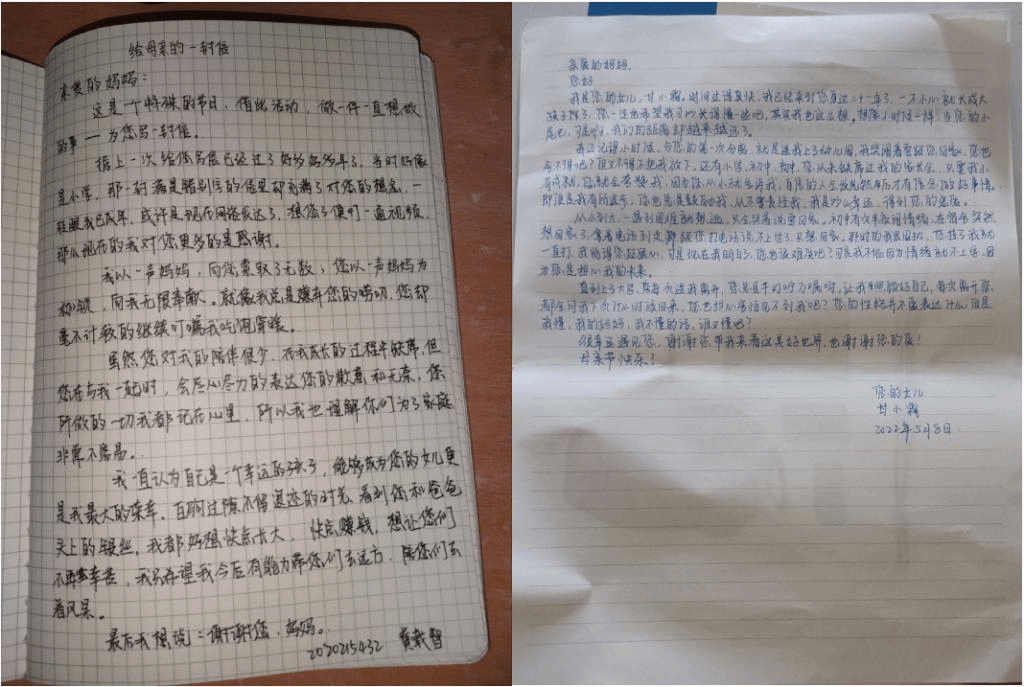 给母亲的一封信
亲爱的妈妈：
这是一个特殊的节日，值此活动，做一件一直想做
的事——为您写一封信。
据上一次给您写信已经过了好多好多年了，当时好像
是小学，那一封满是错别字的信里却充满了对您的想念，一
眨眼我已成年，或许是现在网络发达了，想您了便打一通视频，
那么现在的我对您更多的是感谢。
我以一声妈妈，向您索取了无数；您以一声妈妈为
枷锁，向我无限奉献。就像我总是嫌弃您的唠叨，您却
毫不计较的继续叮嘱我吃饱穿暖。
虽然您对我的陪伴很少，在我成长的过程中缺席，但
您在与我一起时，会尽心尽力的表达您的歉意和无奈，您
所做的一切我都记在心里，所以我也理解你们为了家庭
非常不容易。
我一直认为自己是一个幸运的孩子，能够成为您的女儿更
是我最大的荣幸，白驹过隙不留遗迹的时光，看到您和爸爸
头上的银丝，我都好想快点长大，快点赚钱，想让您们
不再辛苦，我只希望我今后有能力带您们去远方，陪您们去
看风景。
最后我想说：谢谢您，妈妈。
2020215432 黄载智
亲爱的妈妈，
您好
我是您的女儿，甘小霜。时间过得真快，我已经来到您身边二十一年了，一不小心就长成大
孩子了，您一定也希望我可以长得慢一些吧，其实我也这么想。想像小时候一样，当您的小
尾巴，可是啊，我们的距离却越来越远了。
我还记得小时候，与您的第一次分离，就是送我上了幼儿园，我哭闹着要跟您回家，您也
舍不得吧？但又不得不把我放下。还有小学，初中，高中，您从未缺席过我的家长会，只要我小
有成就，您就会夸赞我，因为您从小就告诉我，自信的人会发光
即使是我有所退步，您也总是鼓励我，从不责怪我，我是如此幸运，得到您的宠爱。
从小到大，一遇到困难就想逃，只会哭着说要回家。初中有次半夜闹情绪，
想回家了，拿着电话到走廊跟您打电话说不上学了，只想回家。那时的我
一直打，我明白
为您是担心我的未来。
直到上了大学，每次送我离开，您总是千叮咛万嘱咐，让我照顾好自己，每次离开家，
都会问我下次什么时候回来，您也担心害怕见不到我吧？您的性格并不善表达什么，但是
我懂，我的妈妈，我不懂的话，谁又懂呢？
很幸运遇见您，谢谢您带我来看这美好世界，也谢谢您的爱！
母亲节快乐！
您的女儿
甘小霜
2022年5月8日.